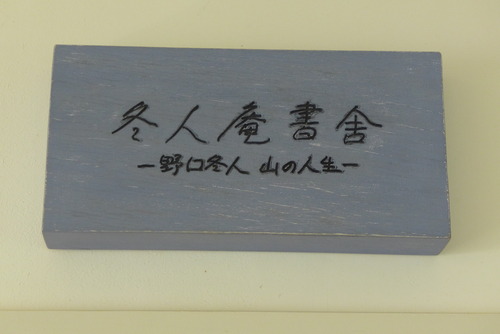 冬人庵書舎
ー野口冬人 山の人生ー